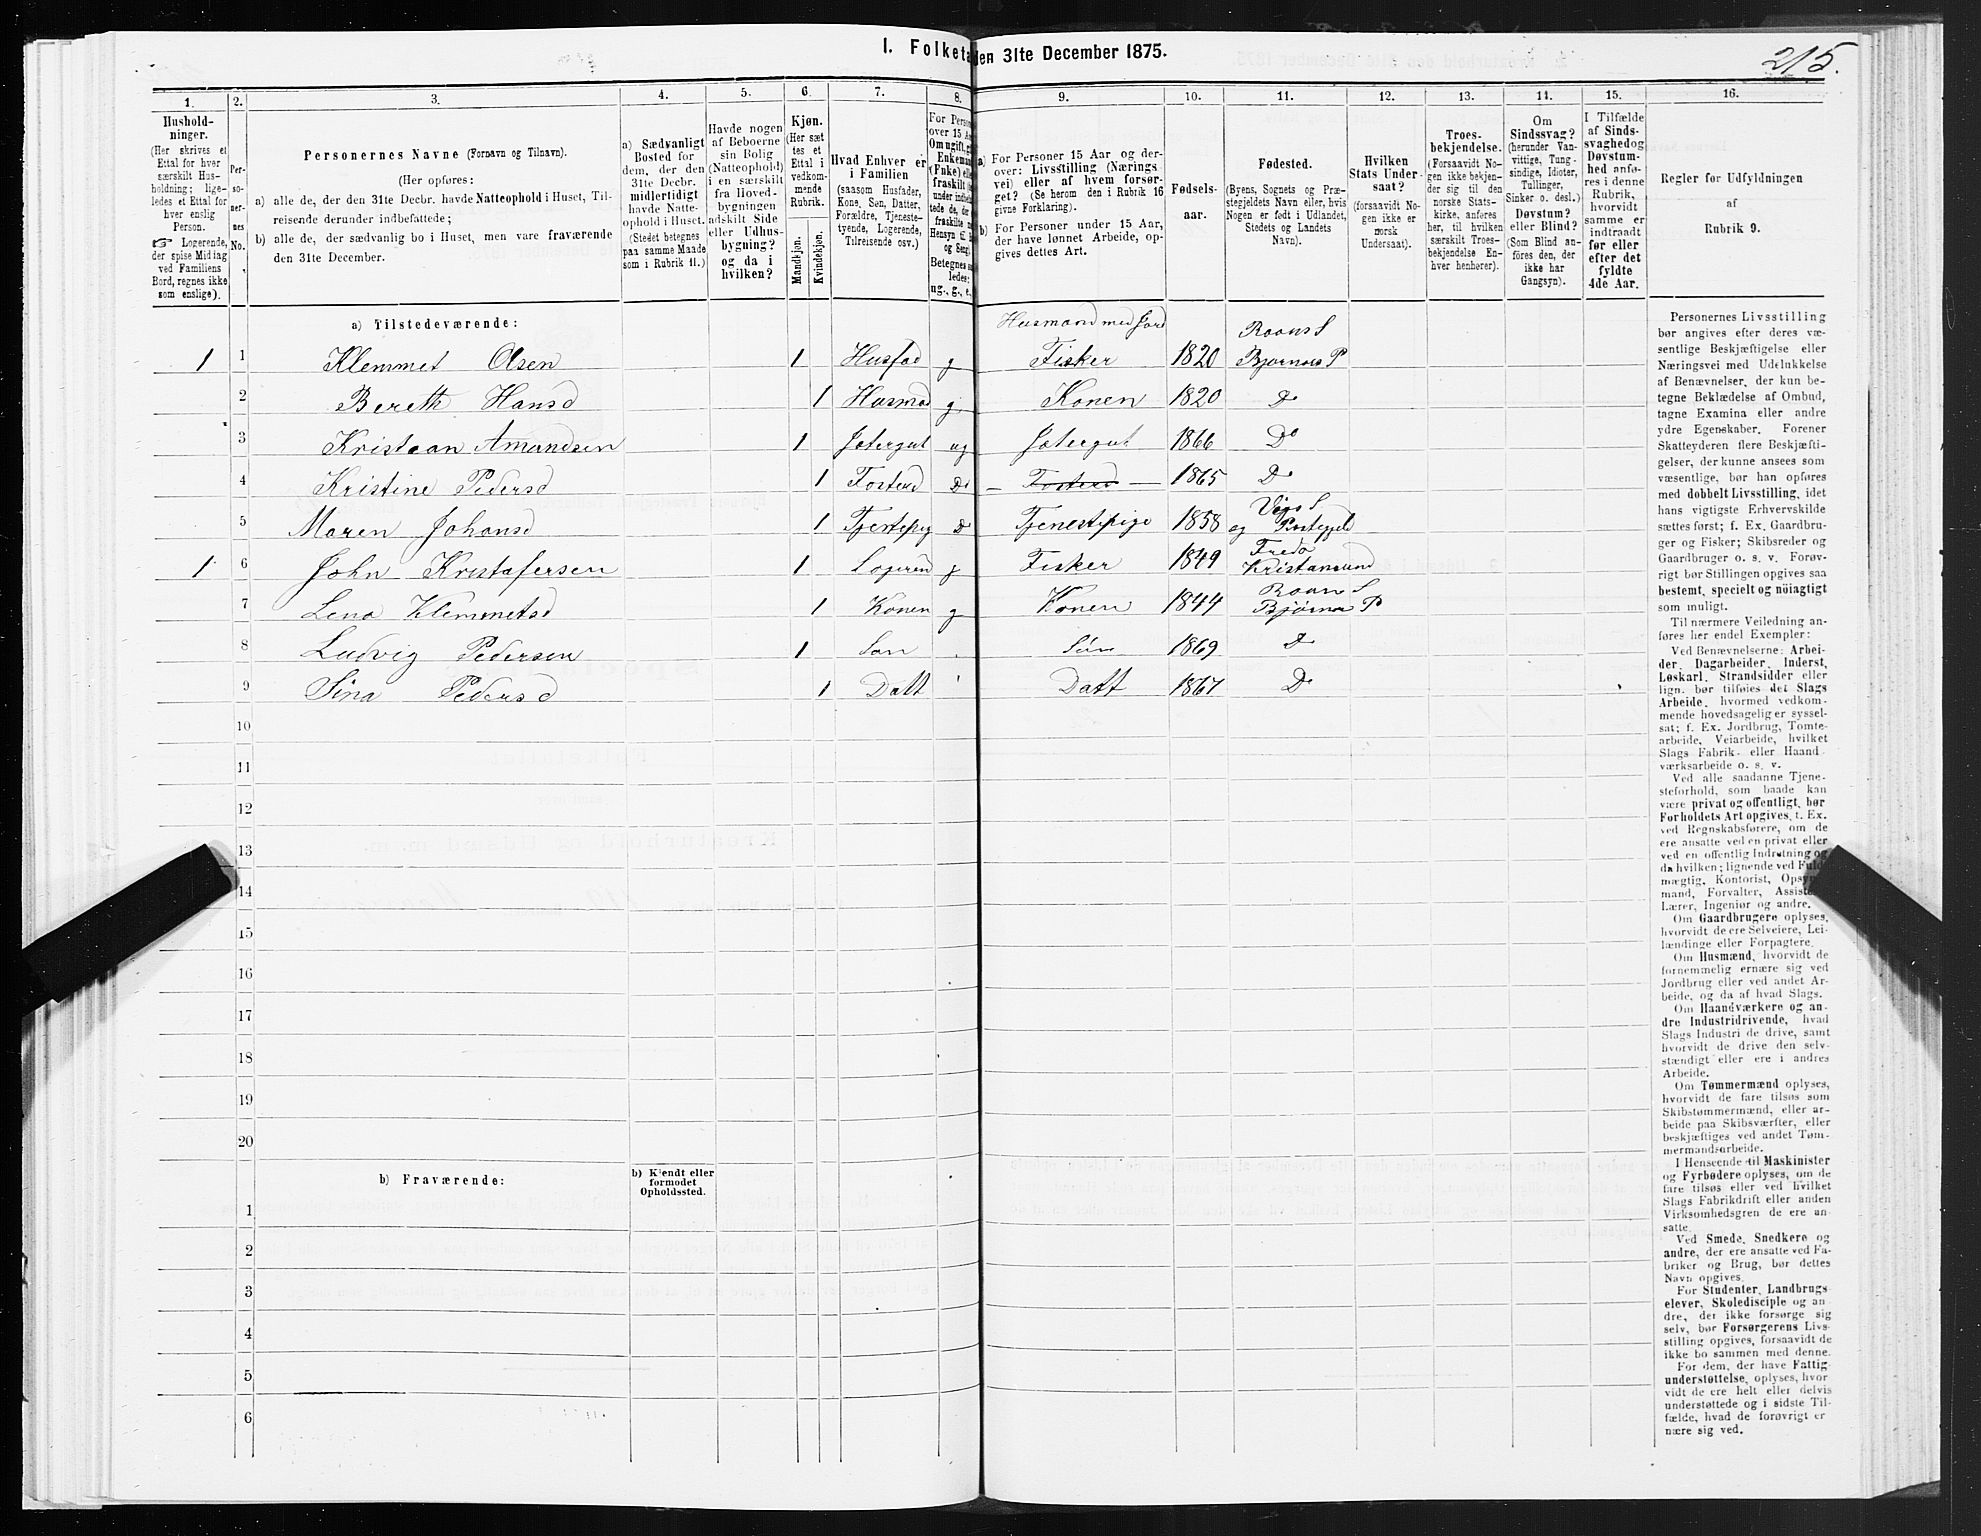 I. Folketa den 31te December 1875.
215.
1.
2.
3.
4.
5.
6.
7.
8.
9.
10.
11.
12.
13.
14.
15.
16.
Hushold-
ninger.
(Her skrives et
Ettal for hver
særskilt Hus-
holdning; lige-
ledes et Ettal for
hver enslig
Person.
☞ Logerende,
der spise Middag
ved Familiens
Bord, regnes ikke
som enslige).
Per-
so-
ner-
nes
No.
Personernes Navne (Fornavn og Tilnavn).
(Her opføres:
a) alle de, der den 31te Decbr. havde Natteophold i Huset, Til-
reisende derunder indbefattede;
b) alle de, der sædvanlig bo i Huset, men vare fraværende
den 31te December.
a) Sædvanligt
Bosted for
dem, der den
31te Decbr.
midlertidigt
havde Natte-
ophold i Huset.
(Stedet betegnes
paa samme Maade
som i Rubrik 11.)
Havde nogen
af Beboerne
sin Bolig
(Natteophold)
i en særskilt
fra Hoved-
bygningen
adskilt Side
eller Udhus-
bygning?
og da i
hvilken?
Kjøn.
(Her sæt
tes et
Ettal i
vedkom-
mende
Rubrik.
Mandkjøn.
Kvindekjøn.
Hvad Enhver er
i Familien
(saasom Husfader,
Kone, Søn, Datter,
Forældre, Tjeneste-
tyende, Logerende,
Tilreisende osv.)
For Person
over 15 Aa
Om ugift, gi
Enkemand
(Enke) elle
fraskilt
under indbe
tede de, der
fraskilte
Hensyn til
og Seng
Betegnes
ledes:
ug., g., e.,
a) For Personer 15 Aar og der-
over: Livsstilling (Nærings-
vei) eller af hvem forsør-
get? (Se herom den i Rubrik 16
givne Forklaring).
b) For Personer under 15 Aar,
der have lønnet Arbeide, op-
gives dettes Art.
Fødsels-
aar.
Fødested.
(Byens, Sognets og Præ-
stegjeldets Navn eller, hvis
Nogen er født i Udlandet,
Stedets og Landets
Navn).
Hvilken
Stats Under-
saat?
(forsaavidt No-
gen ikke er
norsk
Undersaat).
Troes-
bekjendelse.
(Forsaavidt No-
gen ikke bekjen-
der sig til den
norske Stats-
kirke, anføres
her, til hvilken
særskilt Troes-
bekjendelse En-
hver henhører).
Om
Sindssvag?
(herunder Van-
vittige, Tung-
sindige, Idioter,
Tullinger,
Sinker o. desl.)
Døvstum?
eller Blind?
(Som Blind an-
føres den, der
ikke har
Gangsyn).
I Tilfælde
af Sinds-
svaghed og
Døvstum-
hed anfø-
res i denne
Rubrik,
hvorvidt
samme er
indtraadt
før eller
efter det
fyldte
4de Aar.
Regler for Udfyldningen
af
Rubrik 9.
a) Tilstedeværende:
Husmand med Jord
1 1 Klemmet Olsen 1 Husfad g Fisker 1820 Roans S Bjørnøes P
2 Bereth Hansd 1 Husmod g. Konen 1820 Do
3 Kristian Amundsen 1 Jetergut ug Jetergut 1866 Do
4 Kristine Pedersd 1 Fosterd Do Fosterd 1865 Do
5 Maren Johansd 1 Tjestepig Do Tjenestepige 1858 S og
1 6 John Kristafersen 1 Logerend g Fisker 1849 Kristiansund
7 Lena Klemmetsd 1 Konen g Konen 1844 Roans S Bjørnø P
8 Ludvig Pedersen 1 Søn Søn 1869 Do
9 Sina Pedersd 1 Datt Datt 1867 Do
10
11
12
13
14
15
16
17
18
19
20
b) Fraværende:
b) Kjendt eller
formodet
Opholdssted.
1
2
3
4
5
6
Personernes Livsstilling
bør angives efter deres væ-
sentlige Beskjæftigelse eller
Næringsvei med Udelukkelse
af Benævnelser, der kun be-
tegne Beklædelse af Ombud,
tagne Examina eller andre
ydre Egenskaber. Forener
Skatteyderen flere Beskjæfti-
gelser, der kunne ansees som
væsentlige, bør han opføres
med dobbelt Livsstilling, idet
hans vigtigste Erhvervskilde
sættes først; f. Ex. Gaardbru-
ger og Fisker; Skibsreder og
Gaardbruger o. s. v. Forøv-
rigt bør Stillingen opgives saa
bestemt, specielt og nöiagtigt
som muligt.
Til nærmere Veiledning an-
føres her endel Exempler:
Ved Benævnelserne: Arbei-
der, Dagarbeider, Inderst,
Løskarl, Strandsidder eller
lign. bør tilføies det Slags
Arbeide, hvormed vedkom-
mende hovedsagelig er syssel-
sat; f. Ex. Jordbrug, Tomte-
arbeide, Veiarbeide, hvilket
Slags Fabrik- eller Haand-
værksarbeide o. s. v.
Ved alle saadanne Tjene-
steforhold, som baade kan
være privat og offentligt, bør
Forholdets Art opgives, t. Ex.
ved Regnskabsførere, om de
ere ansatte ved en privat eller
ved en offentlig Indretning og
da hvilken; lignende ved Fuld-
mægtig, Kontorist, Opsyns-
mand, Forvalter, Assistent,
Lærer, Ingeniør og andre.
Om Gaardbrugere oplyses,
hvorvidt de ere Selveiere, Lei-
lændinge eller Forpagtere.
Om Husmænd, hvorvidt de
fornemmelig ernære sig ved
Jordbrug eller ved andet Ar-
beide, og da af hvad Slags.
Om Haandværkere og an-
dre Industridrivende, hvad
Slags Industri de drive, samt
hvorvidt de drive den selv-
stændigt eller ere i andres
Arbeide.
Om Tømmermænd oplyses,
hvorvidt de fare tilsøs som
Skibstømmermænd, eller ar-
beide paa Skibsværfter, eller
beskjæftiges ved andet Tøm-
mermandsarbeide.
I Henseende til Maskinister
og Fyrbødere oplyses, om de
fare tilsøs eller ved hvilket
Slags Fabrikdrift eller anden
Virksomhedsgren de ere an-
satte.
Ved Smede, Snedkere og
andre, der ere ansatte ved Fa-
briker og Brug, bør dettes
Navn opgives.
For Studenter, Landbrugs-
elever, Skoledisciple og an-
dre, der ikke forsørge sig
selv, bør Forsørgerens Livs-
stilling opgives, forsaavidt de
ikke bo sammen med denne.
For dem, der have Fattig-
understøttelse, oplyses, hvor-
vidt de ere helt eller delvis
understøttede og i sidste Til-
fælde, hvad de forøvrigt er
nære sig ved.